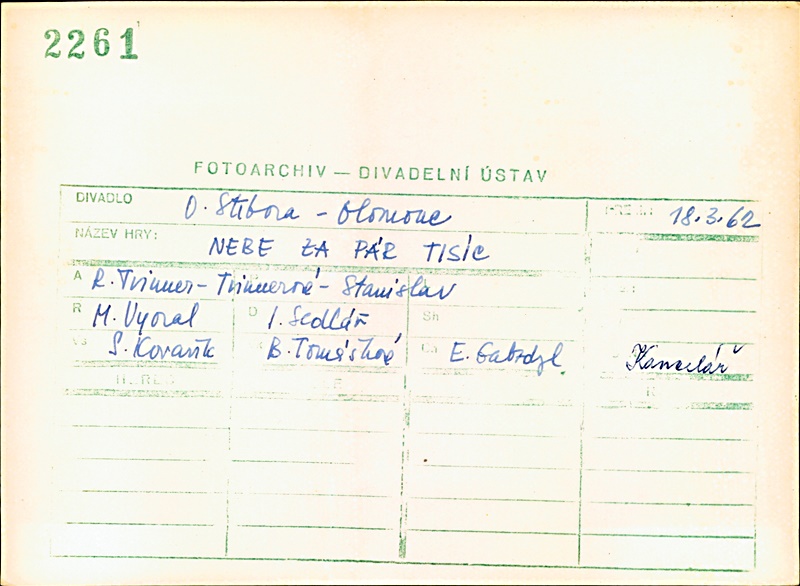 2261
FOTOARCHIV — DIVADELNÍ ÚSTAV
DIVADLO O. Stibora - Olomouc 18.3.62
NÁZEV HRY: NEBE ZA PÁR TISÍC
A R. Tvimer - Tvimerová - Stanislav
R M. Vyoral D I. Sedlář Sh
S. Kovařík B. Tomášková E. Gabzdyl Kancelář